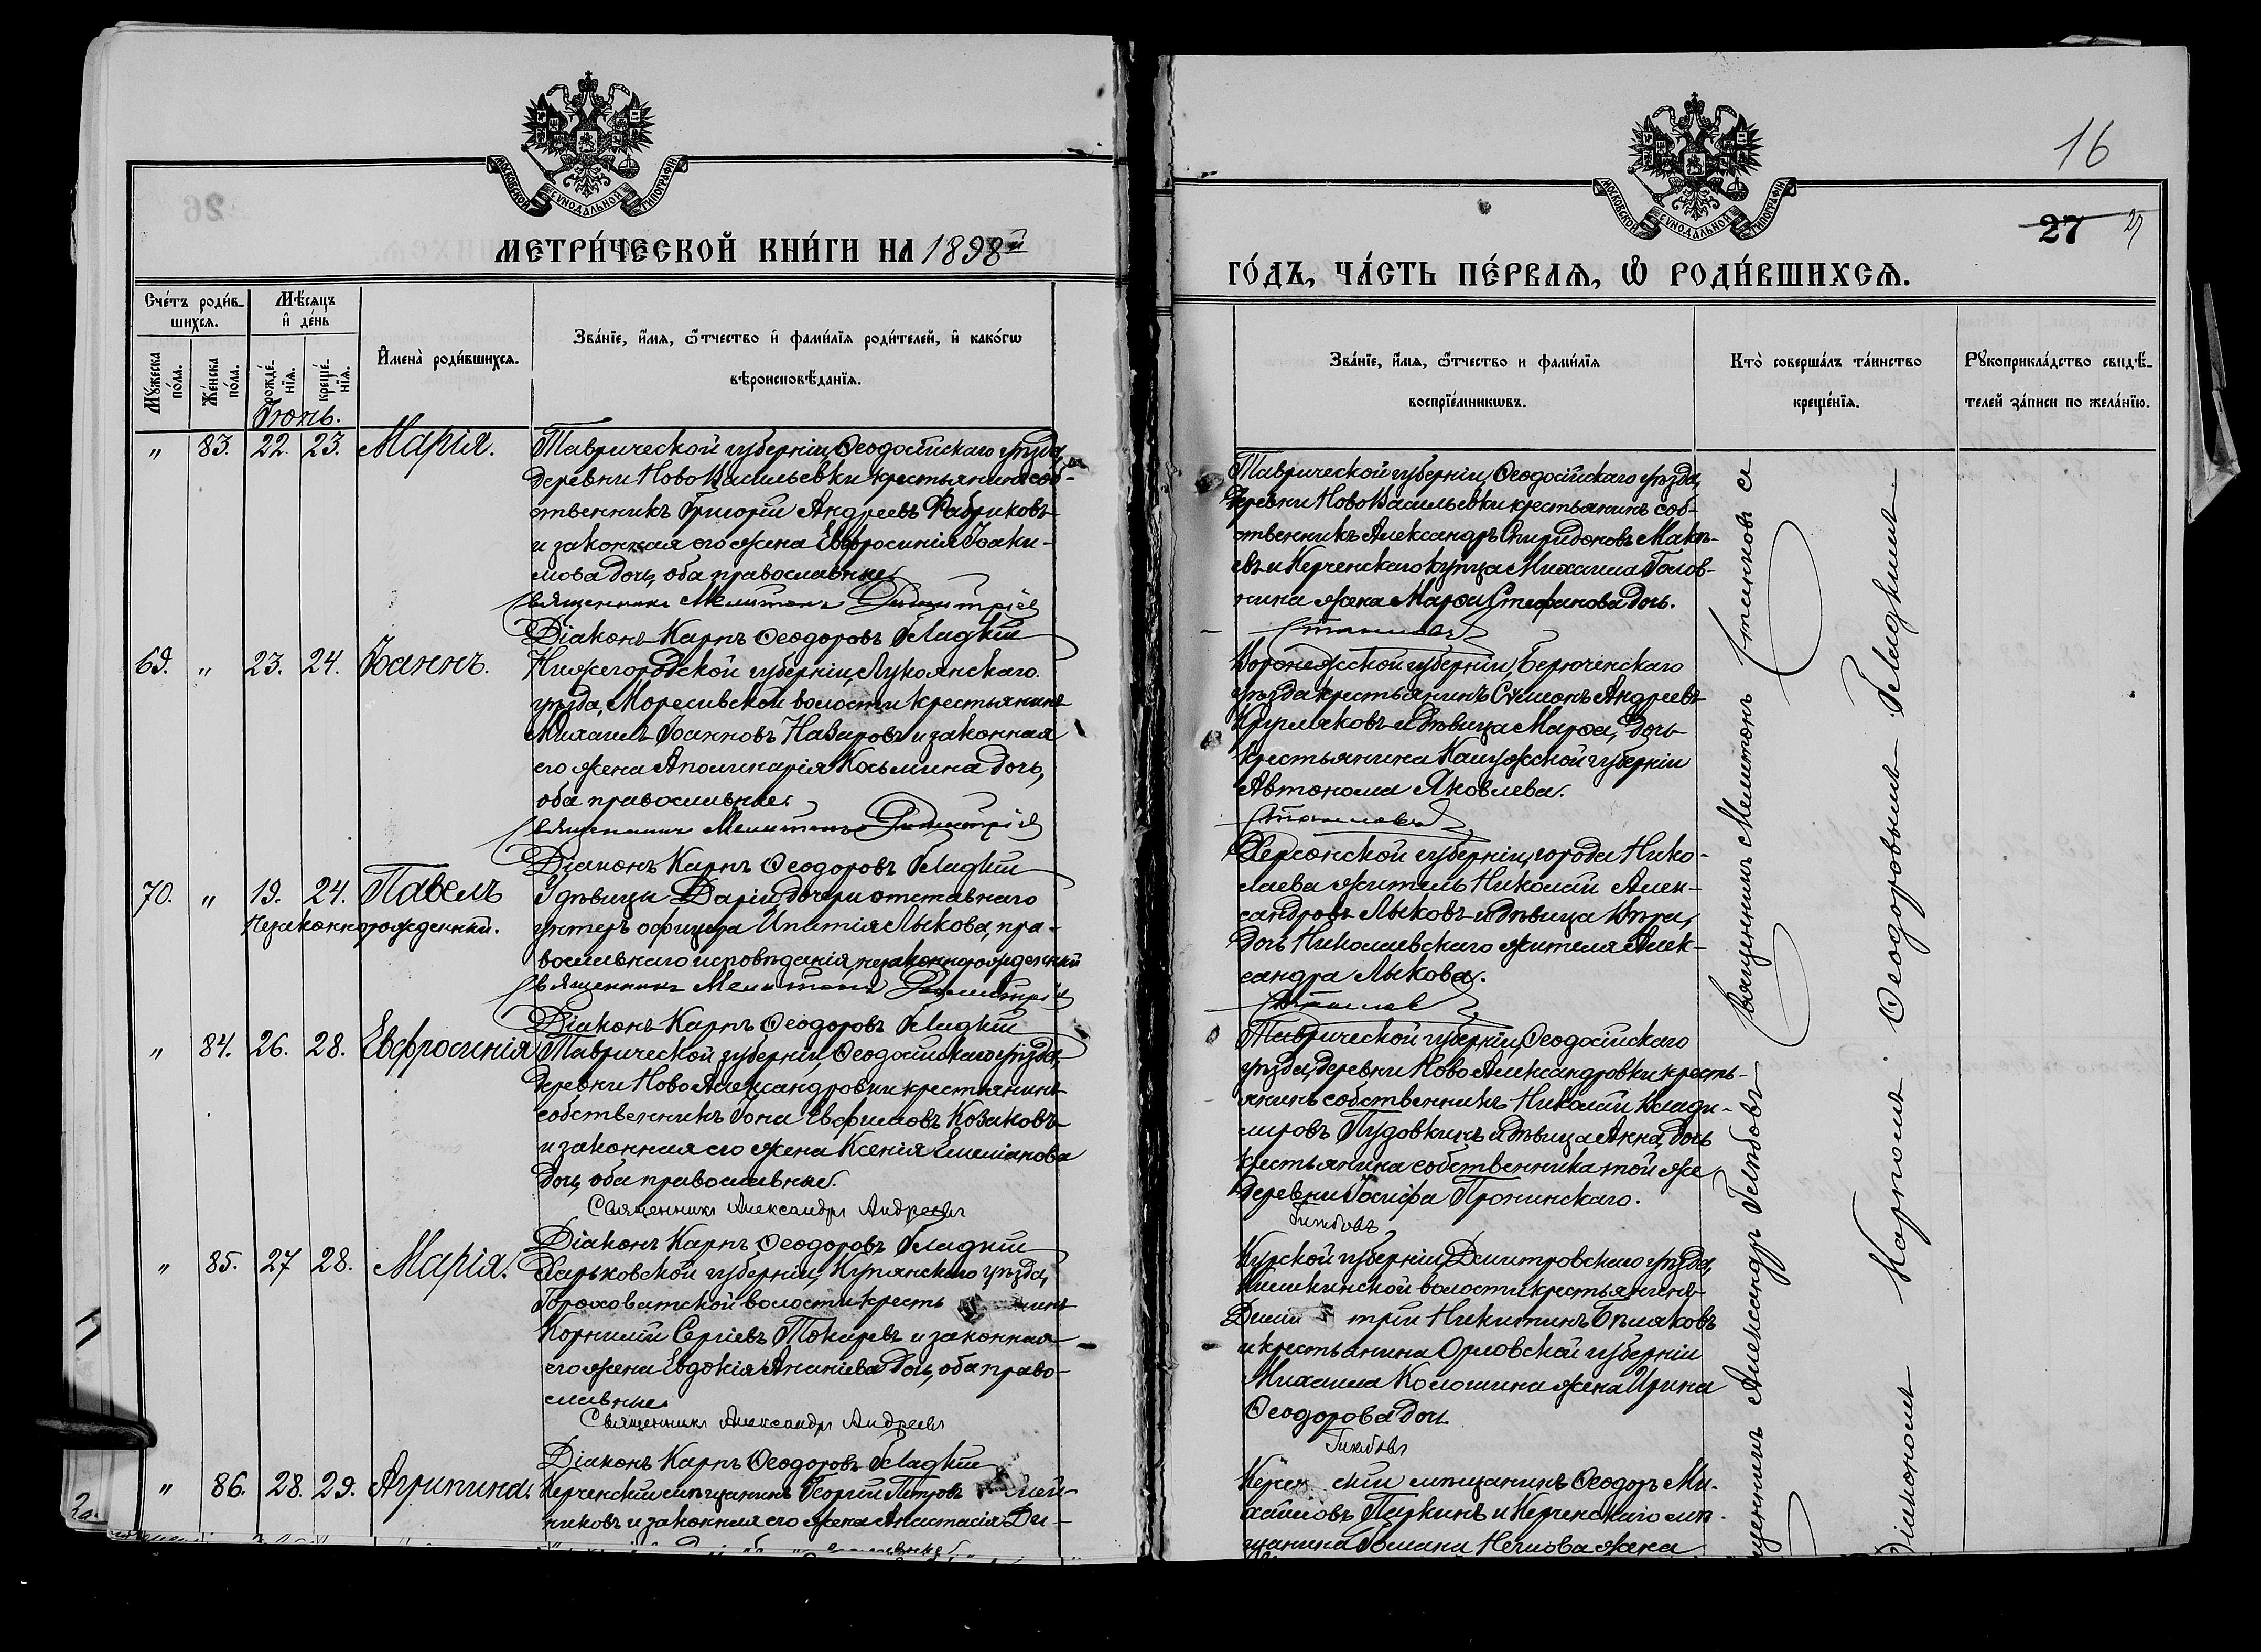 МОСКОВСКОЙ СѴНОДАЛЬНОЙ ТИПОГРАФІИ
МЕТРИ́ЧЕСКОЙ КНИ́ГИ НА 1898й
Сче́тъ роди́в-
шихся.
Мѣ́сяцъ
и҆ де́нь
Мꙋжеска по́ла.
Же́нска по́ла.
рожде́-
нїя.
креще́-
нїя.
И҆мена̀ роди́вшихся.
Зва́нїе, и҆́мя, ѻ҆́тчество и҆ фами́лїя роди́телей, и҆ како́гѡ
вѣроисповѣ́данїя.
Іюнь.
" 83. 22. 23. Марія.
Таврической губерніи, Ѳеодосійскаго уѣзда,
деревни НовоВасильевки крестьянинъ соб-
ственникъ Григорій Андреевъ Фабриковъ
и законная его жена Евфросинія Іоаки-
мова дочь, оба православные.
Священникъ Мелитонъ Димитріев
Діаконъ Карпъ Ѳеодоровъ Гладкій
69. " 23. 24. Іоаннъ.
Нижегородской губерніи, Лукоянскаго
уѣзда, Моресивской волости крестьянинъ
Михаилъ Іоанновъ Назаровъ и законная
его жена Аполинарія Косьмина дочь,
оба православные.
Священникъ Мелитонъ Димитріев
Діаконъ Карпъ Ѳеодоровъ Гладкій
70. " 19. 24. Павелъ
Незаконнорожденный.
У дѣвицы Даріи, дочери отставнаго
унтеръ офицера Ипатія Лыкова, пра-
вославнаго исповѣданія, незаконнорожденный
Священникъ Мелитонъ Димитріев
Діаконъ Карпъ Ѳеодоровъ Гладкій
" 84. 26. 28. Евфросинія
Таврической губерніи, Ѳеодосійскаго уѣзда,
деревни НовоАлександровки крестьянинъ
собственникъ Іона Евфимовъ Козаковъ
и законная его жена Ксенія Емеліанова
дочь, оба православные.
Священникъ Александръ Андреевъ
Діаконъ Карпъ Ѳеодоровъ Гладкій
" 85. 27 28. Марія.
Харьковской губерніи, Купянскаго уѣзда,
Гороховатской волости кресть нинъ
Корнилій Сергіевъ Токаревъ и законная
его жена Евдокія Ананіева дочь, оба право-
славные.
Священникъ Александръ Андреевъ
Діаконъ Карпъ Ѳеодоровъ Гладкій
" 86. 28. 29. Агрипина.
Керченскій мѣщанинъ Георгій Петровъ
никовъ и законная его жена Анастасія Ди-
16
27
МОСКОВСКОЙ СѴНОДАЛЬНОЙ ТИПОГРАФІИ
ГО́ДЪ, ЧА́СТЬ ПЕ́РВАЯ, Ѽ РОДИ́ВШИХСЯ.
Зва́нїе, и҆́мя, ѻ҆́тчество и фами́лїя
воспрїе́мникѡвъ.
Кто̀ соверша́лъ та́инство
креще́нїя.
Рꙋкоприкла́дство свидѣ́-
телей за́писи по жела́нїю.
Таврической губерніи, Ѳеодосійскаго уѣзда,
деревни НовоВасильевки крестьянинъ соб-
ственникъ Александръ Спиридоновъ Макѣ-
евъ и Керченскаго купца Михаила Голов-
нина жена Марѳа Стефанова дочь.
Станиковъ
Воронежской губерніи, Бирюченскаго
уѣзда крестьянинъ Сумеонъ Андреевъ
Кругляковъ и дѣвица Марѳа, дочь
крестьянина Калужской губерніи
Автонома Яковлева.
Станиковъ
Херсонской губерніи, города Нико-
лаева житель Николай Алек-
сандровъ Лыковъ и дѣвица Вѣра,
дочь Николаевскаго жителя Алек-
сандра Лыкова.
Станиковъ
Таврической губерніи, Ѳеодосійскаго
уѣзда, деревни НовоАлександровки кресть-
янинъ собственникъ Николай Влади-
мировъ Пудовкинъ и дѣвица Анна, дочь
крестьянина собственника той же
деревни Іосифа Пронинскаго.
Глѣбовъ
Курской губерніи, Дмитровскаго уѣзда,
волости крестьянинъ
Дими трій Никитинъ Бѣляковъ
и крестьянина Орловской губерніи
Михаила Кологшина жена Ирина
Ѳеодорова дочь.
Глѣбовъ
Керчен скій мѣщанинъ Ѳеодоръ Ми-
хайловъ Пиркинъ и Керченскаго мѣ-
щанина жена
Священникъ Мелитонъ Станиковъ съ
Священникъ Александръ Глѣбовъ
Діакономъ Карпомъ Ѳеодоровымъ Гладкимъ